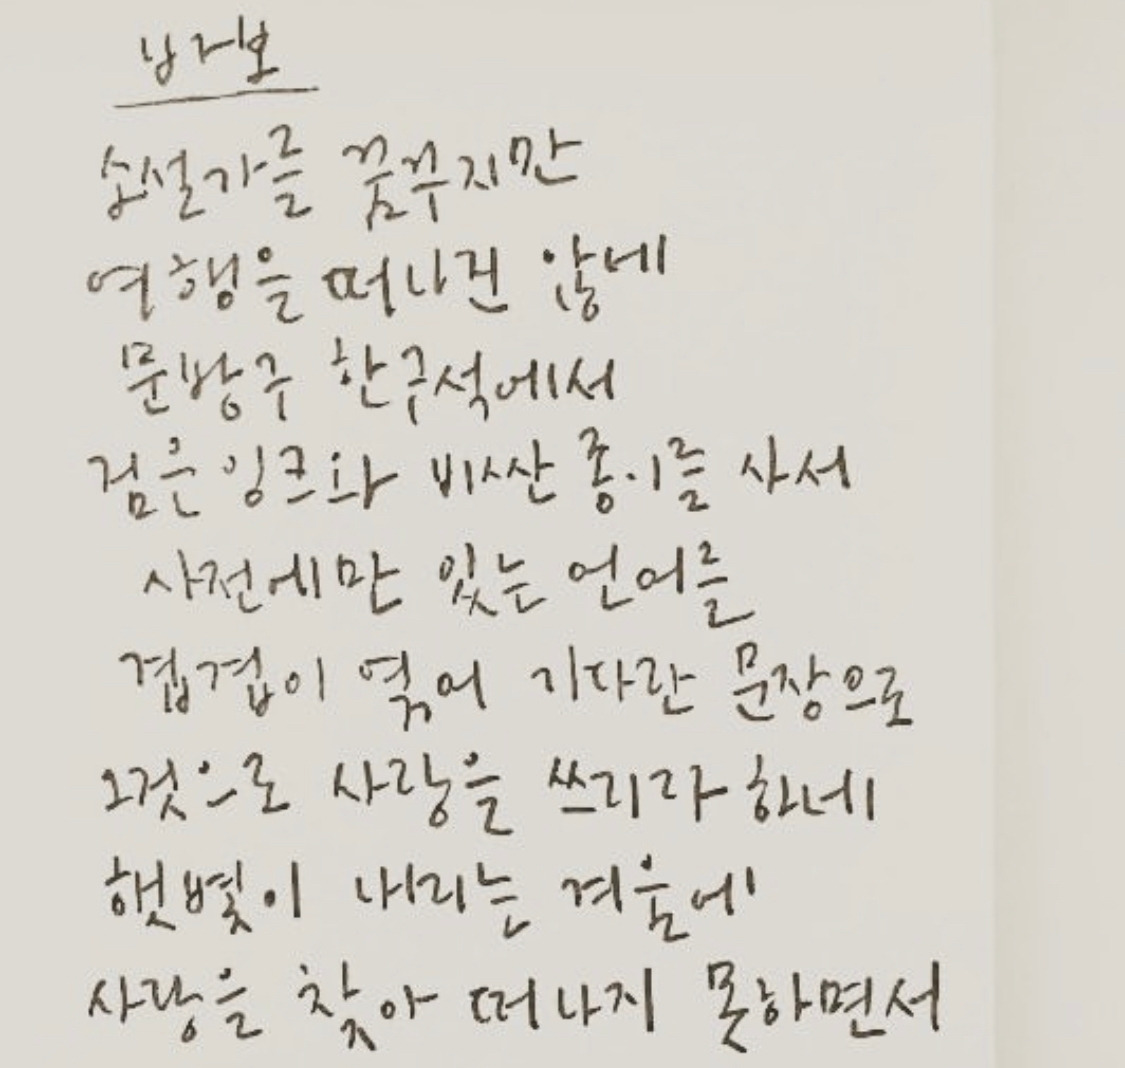 바보
소설가를 꿈꾸지만
여행을 떠나진 않네
문방구 한구석에서
검은 잉크와 비싼 종이를 사서
사전에만 있는 언어를
겹겹이 엮어 기다란 문장으로
그것으로 사랑을 쓰리라 하네
햇볕이 내리는 겨울에
사랑을 찾아 떠나지 못하면서